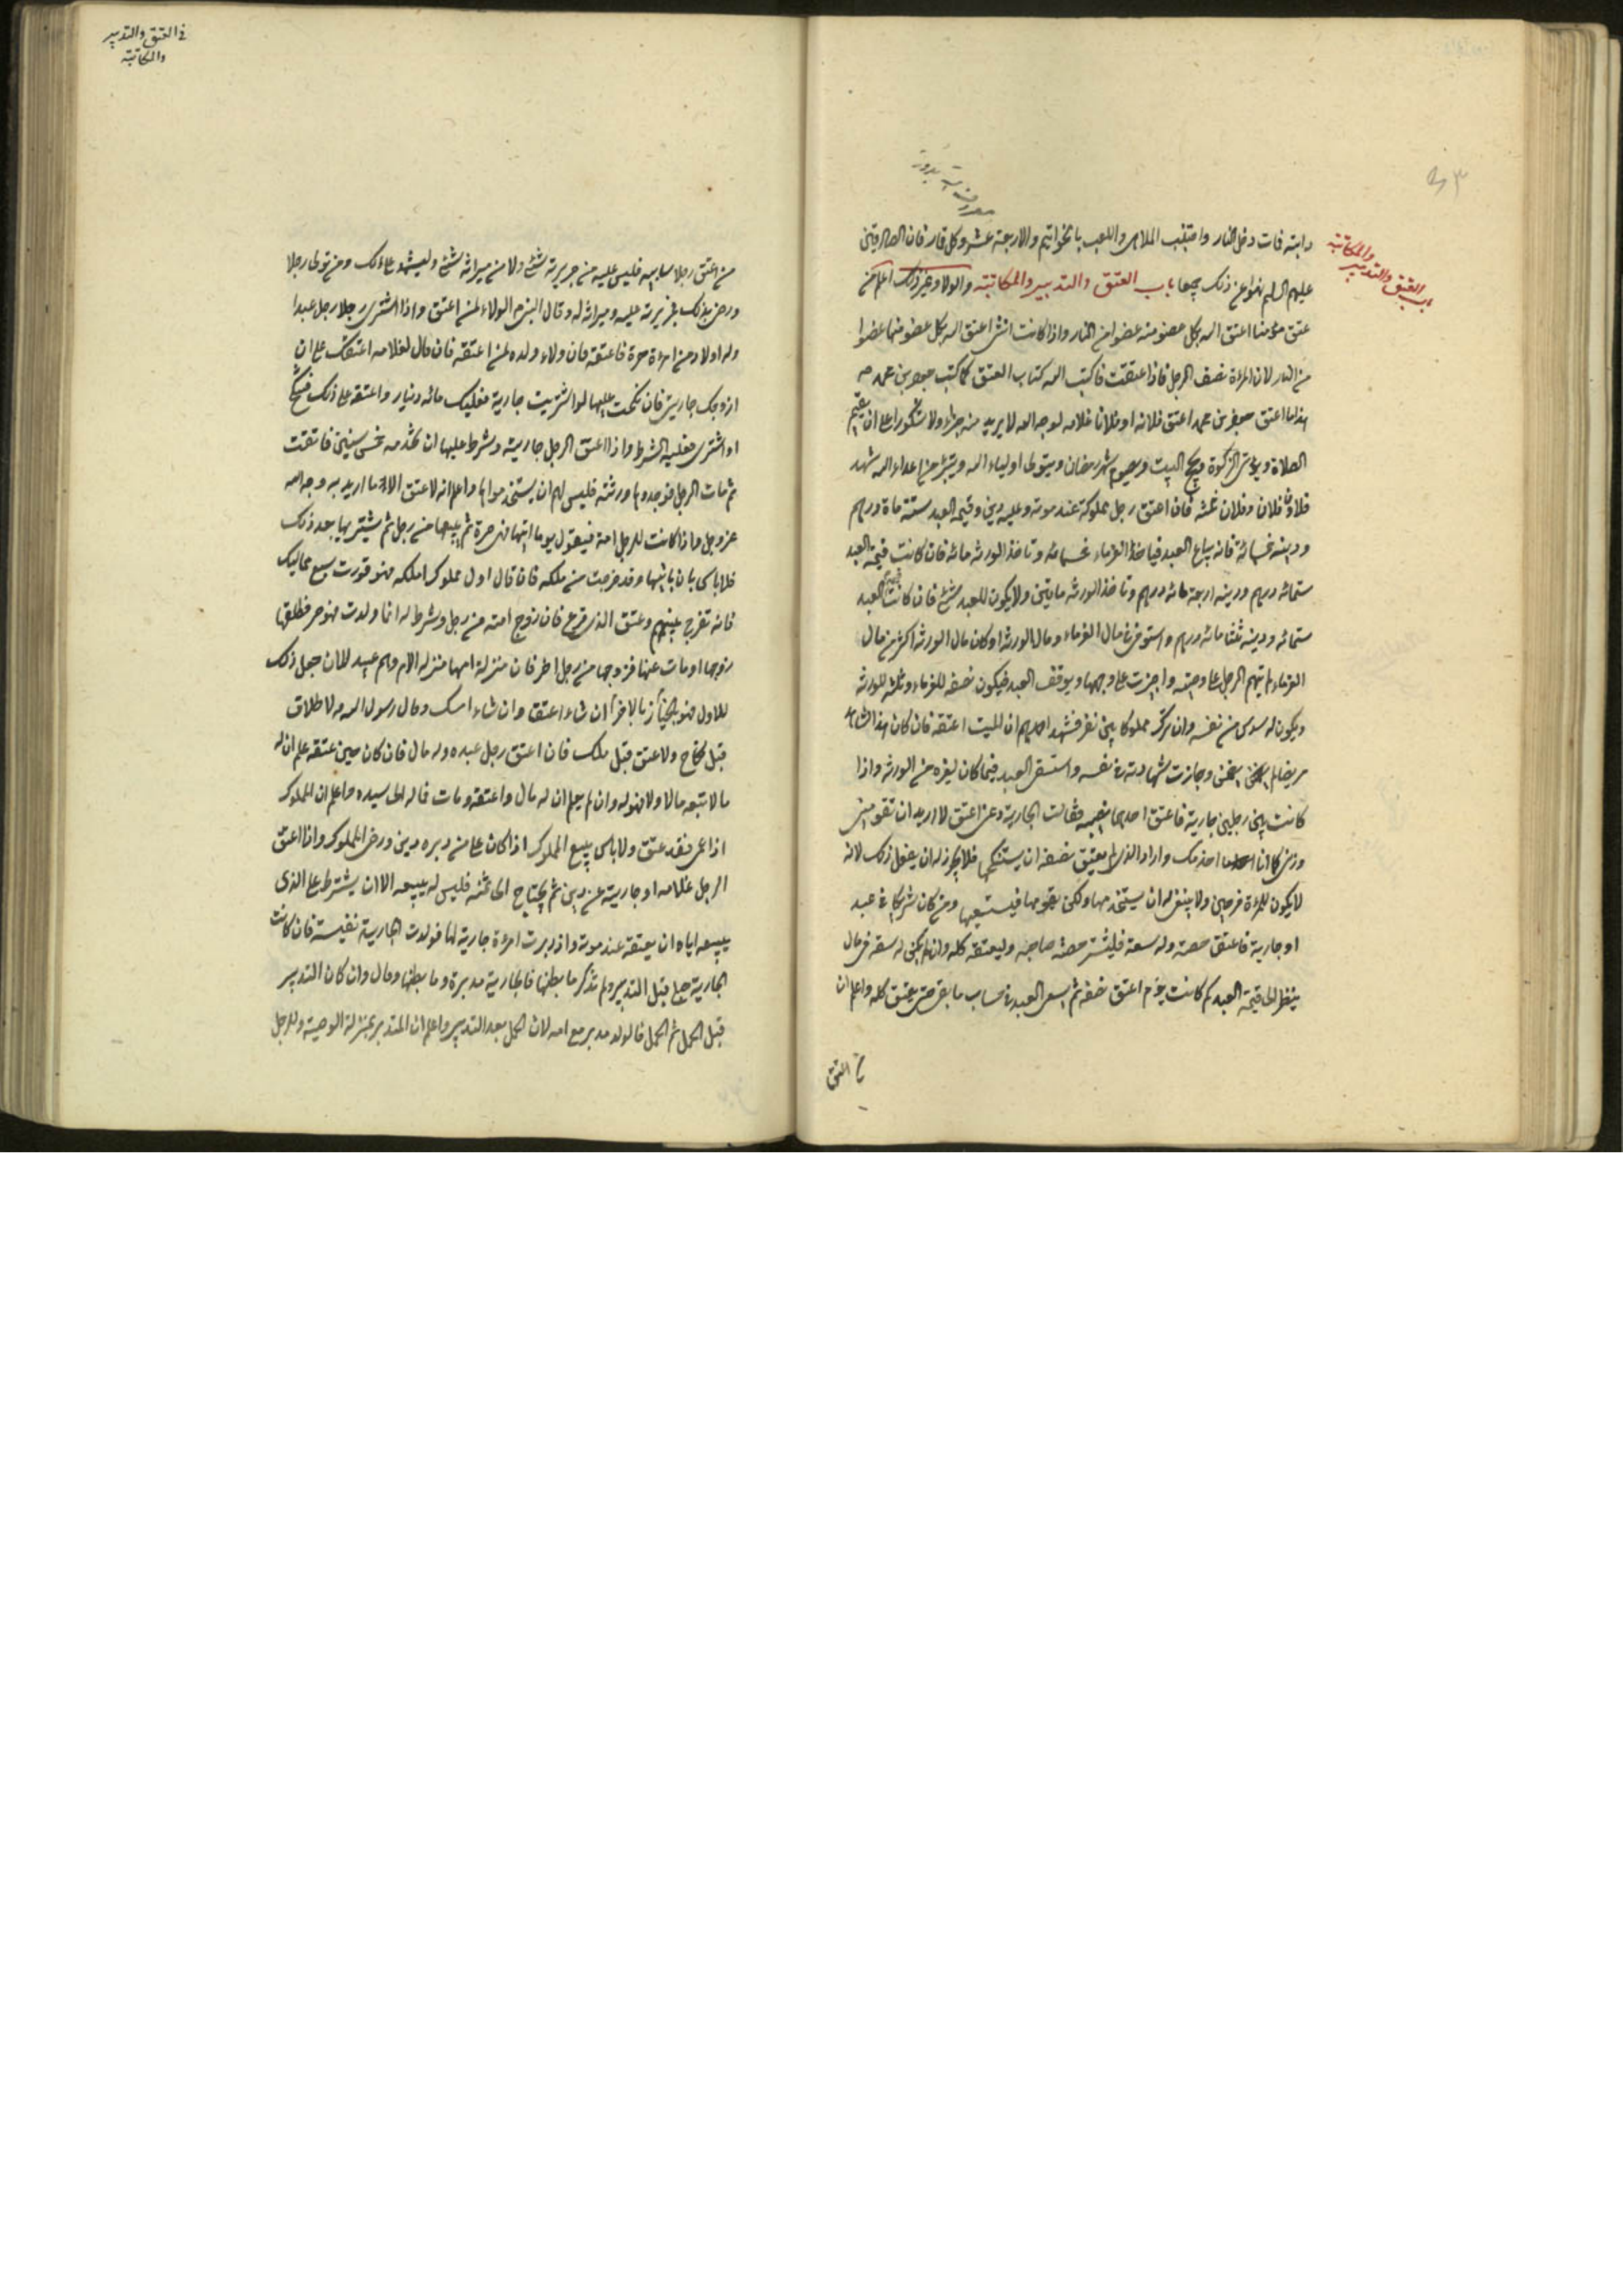 باب العتق والتدبير
والمكاتبة
دابته فمات دخل النار واجتنب الملاهى واللعب بالخواتيم والاربعة عشر وكل قمار فان الصادقين
عليهم السلام نهوا عن ذلك جميعا باب العتق والتدبير والمكاتبة والولاء وغير ذلك اعلم من
عتق مؤمنا اعتق الله بكل عضو منه عضوا من النار واذا كانت انثى اعتق الله بكل عضو منها عضوا
من النار لان المرءة نصف الرجل فاذا اعتقت فاكتب كتاب العتق كما كتب جعفر بن محمد
هذا ما اعتق جعفر بن محمد اعتق فلانه او فلانا غلامه لوجه الله لا يريد منه جزاء ولا شكورا على ان يقيم
الصلاة ويؤتى الزكوة ويحج البيت ويصوم شهر رمضان ويتولى اولياء الله ويتبرء من اعداء الله شهد
فلان فلان وفلان ثلثه فان اعتق رجل مملوكه عند موته وعليه دين وقيمه العبد ستة ماة درهم
ودينه خمسمائة فانه يباع العبد فياخذ الغرماء خمسمائه وتاخذ الورثه مائه فان كانت قيمة العبد
ستمائه درهم ودينه اربعة مائه درهم وتاخذ الورثه مايتين ولا يكون للعبد شئ فان كانت قيمة العبد
ستمائه ودينه ثلثمائه درهم واستوفى مال الغرماء ومال الورثه او كان مال الورثه اكثر من مال
الغرماء لم يتهم الرجل على وصيته واجيزت على وجهها ويوقف العبد فيكون نصفه للغرماء وثلثه للورثه
ويكون له سدس من نفسه وان ترك مملوكا بين نفر فشهد احدهم ان الميت اعتقه فان كان هذا الشاهد
مرضيا لم يضمن وجازت شهادته فى نفسه واستسعى العبد فيما كان لغيره من الورثه واذا
كانت بين رجلين جارية فاعتق احدهما نصيبه فقالت الجارية دعنى اعتق لا اريد ان تقومنى
وذرنى كما انا اخدمك واراد الذى لم يعتق نصفه ان يستنكحها فلا يجوز له ان يفعل ذلك لانه
لا يكون للمرءة فرجين ولا ينبغى له ان يستخدمها ولكن يقومها فيستسعيها ومن كان شريكا فى عبد
او جارية فاعتق حصته وله سعة فليشتر حصة صاحبه وليعتقه كله وان لم يكن له سعة من مال
ينظر الى قيمة العبد كم كانت يوم اعتق نصفه ثم يسعى العبد فى حساب ما بقى حتى يعتق كله واعلم ان
فى العتق والتدبير
والمكاتبة
من اعتق رجلا سايبه فليس عليه من جريرته شئ ولا من ميراثه شئ وليشهد على ذلك ومن تولى رجلا
ورضى بذلك فجريرته عليه وميراثه له وقال النبى الولاء لمن اعتق واذا اشترى رجل عبدا
وله اولاد من امرءة حرة فاعتقه فان ولاء ولده لمن اعتقه فان قال لغلامه اعتقتك على ان
ازوجك جاريتى فان نكحت عليها او اشتريت جارية فعليك مائه دينار واعتقه على ذلك فنكح
او اشترى فعليه الشرط واذا اعتق الرجل جاريته وشرط عليها ان تخدمه خمس سنين فابقت
ثم مات الرجل فوجدوها ورثته فليس لهم ان يستخدموها واعلم انه لا عتق الا ما اريد به وجه الله
عز وجل واذا كانت للرجل امة فيقول يوما اتيها فهى حرة ثم يبيعها من رجل ثم يشتريها بعد ذلك
فلا باس بان ياتيها وقد خرجت من ملكه فان قال اول مملوك املكه فهو حر فورث سبع مماليك
فانه تقرع بينهم وعتق الذى قرع فان زوج امته من رجل وشرط له انما ولدت فهو حر فطلقها
زوجها او مات عنها فزوجها من رجل اخر فان منزلة امها منزله الام وهم عبيد لان جعل ذلك
للاول فهو بالخيار فى الاخر ان شاء اعتق وان شاء امسك وقال رسول الله لا طلاق
قبل نكاح ولا عتق قبل ملك فان اعتق رجل عبده وله مال فان كان حين عتقه علم ان له
مالا تبعه ماله والا فهو له وان لم يعلم ان له مال واعتقه ومات فماله الى سيده واعلم ان المملوك
اذا عمى فقد عتق ولا باس ببيع المملوك اذا كان على من دبره دين ورضى المملوك واذا اعتق
الرجل غلامه او جاريته عن دبر ثم يحتاج الى ثمنه فليس له بيعه الا ان يشترط على الذى
يبيعه اياه ان يعتقه عند موته واذا دبرت امرءة جارية لها فولدت الجارية نفيسة فان كانت
الجارية حبلى قبل التدبير ولم تذكر ما بطنها فالجارية مدبرة وما بطنها ومال وان كان التدبير
قبل الحمل ثم الحمل فالولد مدبر مع امه لان الحمل بعد التدبير واعلم ان المدبر بمنزلة الوصية وللرجل